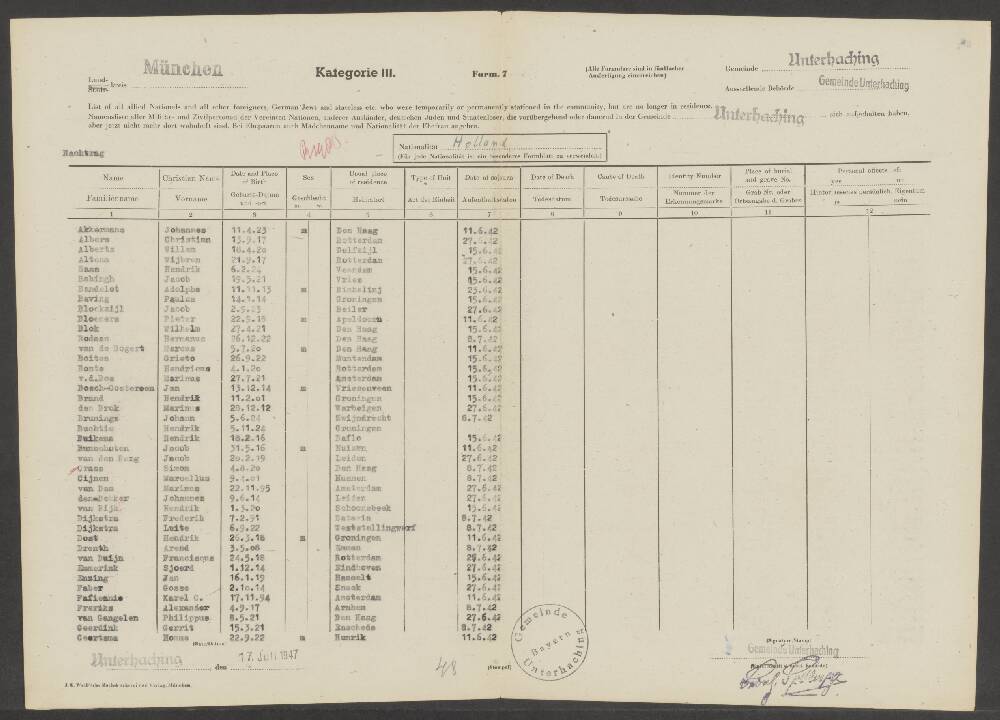 München
Land-
Stadt- kreis
Kategorie III.
Form. 7
(Alle Formulare sind in fünffacher
Ausfertigung einzureichen)
Gemeinde Unterhaching
Ausstellende Behörde Gemeinde Unterhaching
List of all allied Nationals and all other foreigners, German Jews and stateless etc. who were temporarily or permanently stationed in the community, but are no longer in residence.
Namensliste aller Militär- und Zivilpersonen der Vereinten Nationen, anderer Ausländer, deutschen Juden und Staatenloser, die vorübergehend oder dauernd in der Gemeinde Unterhaching sich aufgehalten haben,
aber jetzt nicht mehr dort wohnhaft sind. Bei Ehepaaren auch Mädchenname und Nationalität der Ehefrau angeben.
Nachtrag
Nationalität Holland
(Für jede Nationalität ist ein besonderes Formblatt zu verwenden)
Name Christian Name Date and Place of Birth Sex Usual place of residence Type of Unit Date of sojourn Date of Death Cause of Death Identity Number Place of burial and grave No. Personal effects of: yes no
Familienname Vorname Geburts-Datum und -ort Geschlecht m. w. Heimatort Art der Einheit Aufenthaltsdaten Todesdatum Todesursache Nummer der Erkennungsmarke Grab Nr. oder Ortsangabe d. Grabes Hinterlassenes persönlich. Eigentum ja nein
1 2 3 4 5 6 7 8 9 10 11 12
Akkermans Johannes 11.4.23 m Den Haag 11.6.42
Albers Christian 13.9.17 Rotterdam 27.6.42
Alberts Willem 18.4.20 Delfzijl 15.6.42
Altena Wijbren 21.9.17 Rotterdam 27.6.42
Baan Hendrik 6.2.24 Veendam 15.6.42
Babingh Jacob 19.5.21 Vries 15.6.42
Bandelot Adolphe 11.11.13 m 23.6.42
Baving Paulus 14.1.14 Groningen 15.6.42
Blockzijl Jacob 2.9.23 Beiler 27.6.42
Bloemers Pieter 22.9.18 m Apeldoorn 11.6.42
Blok Wilhelm 27.4.21 Den Haag 15.6.42
Rodaan Hermanus 26.12.22 Den Haag 8.7.42
van de Bogert Marcus 5.7.20 m Den Haag 11.6.42
Boiten Grieto 26.9.22 Muntendam 15.6.42
Bonte Hendricus 4.1.20 Rotterdam 15.6.42
v.d.Bos Marinus 27.7.21 Amsterdam 15.6.42
Bosch-Oosteroon Jan 13.12.14 m Vriezenveen 11.6.42
Brand Hendrik 11.2.01 Groningen 15.6.42
den Brok Marinus 28.12.12 27.6.42
Brunings Johann 5.6.24 Zwijndrecht 8.7.42
Buchtic Hendrik 5.11.24 Groningen
Buikema Hendrik 18.2.16 15.6.42
Bunschoten Jacob 31.5.16 m Huizen 11.6.42
van den Burg Jacob 20.2.19 Leiden 27.6.42
Crass Simon 4.8.20 Den Haag 8.7.42
Cijnen Marcellus 9.4.01 8.7.42
van Dam Marinus 22.11.95 Amsterdam 27.6.42
den Dekker Johannes 9.6.14 27.6.42
van Dijk Hendrik 1.3.20 Schoonebeek 15.6.42
Dijkstra Frederik 7.2.91 Batavia 8.7.42
Dijkstra Luite 6.9.22 Weststellingwerf 8.7.42
Dost Hendrik 26.3.18 m Groningen 11.6.42
Drenth Arend 3.5.08 Emmen 8.7.42
van Duijn Franciscus 24.5.18 Rotterdam 27.6.42
Emmerink Sjoerd 1.12.14 Eindhoven 27.6.42
Ensing Jan 16.1.19 Hasselt 15.6.42
Faber Gosse 2.10.14 Sneek 27.6.42
Karel C. 17.11.94 Amsterdam 11.6.42
Freriks Alexander 4.9.17 Arnhem 8.7.42
van Gangelen Philippus 8.5.21 Den Haag 27.6.42
Geerdink Gerrit 15.3.21 Enschede 8.7.42
Geertsma Homme 22.9.22 m Hunrik 11.6.42
Unterhaching, den 17. Juli 1947
48
(Stempel)
Gemeinde Unterhaching
Bayern
(Signature, Stamp)
Gemeinde Unterhaching